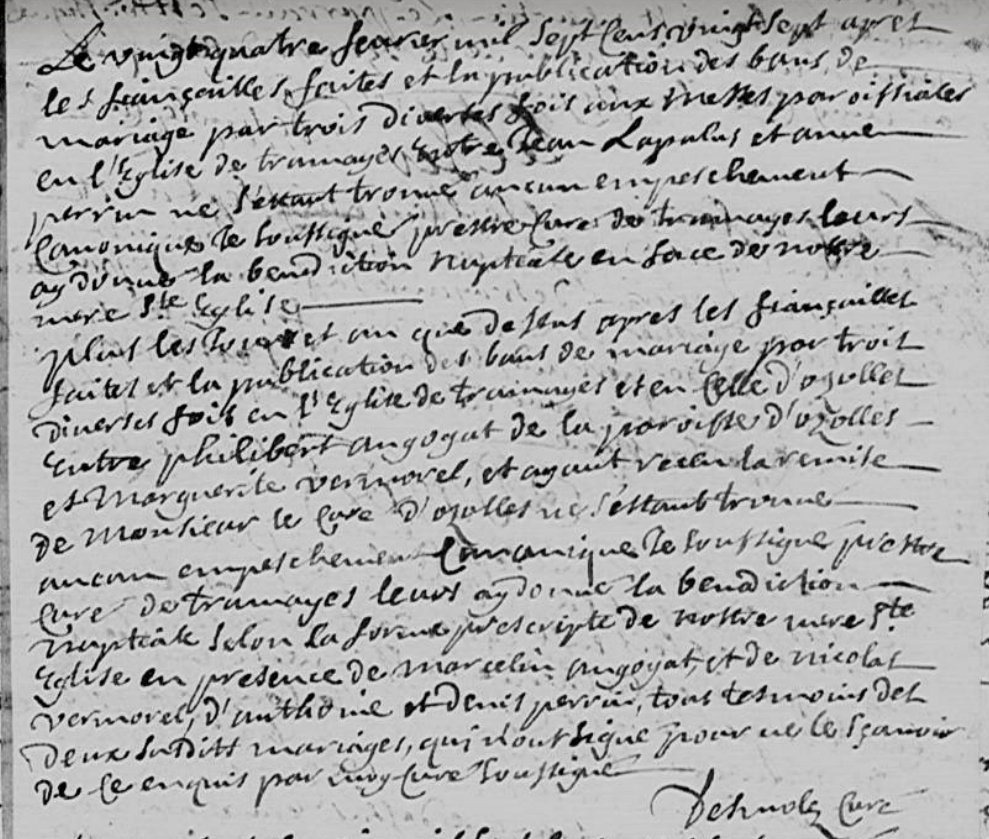 Le vingt quatre feurier mil sept cens vingt sept apret
les fiançailles faites et la publication des bans de
mariage par trois diuertes fois aux messes paroissiales
en l'Eglise de tramayes Entre Jean Lapalus et anne
perrin ne s'estant trouué aucun empeschement
Canonique Je soussigné prestre Curé de tramayes leurs
ay donné la benediction nuptiale en face de nostre
mere Ste Eglise
plus les jour et an que dessus apres les fiançailles
faites et la publication des bans de mariage par troit
diuerses fois en l'Eglise de tramayes et en celle d'ozolles
Entre philibert augogat de la paroisse d'ozolles
et Marguerite vermorel, et ayant receu la remise
de Monsieur le Curé d'ozolles ne s'estant trouué
aucun empeschement Canonique Je soussigné prestre
Curé de tramayes leurs ay donné la benediction
nuptiale selon la forme prescripte de nostre mere Ste
Eglise en presence de marcelin augogat, et de nicolas
vermorel, d'anthoine et denis perrin, tous tesmoins des
deux suditt mariages, qui n'ont signé pour ne le sçauoir
de ce enquis par moy Curé soussigné
Curé